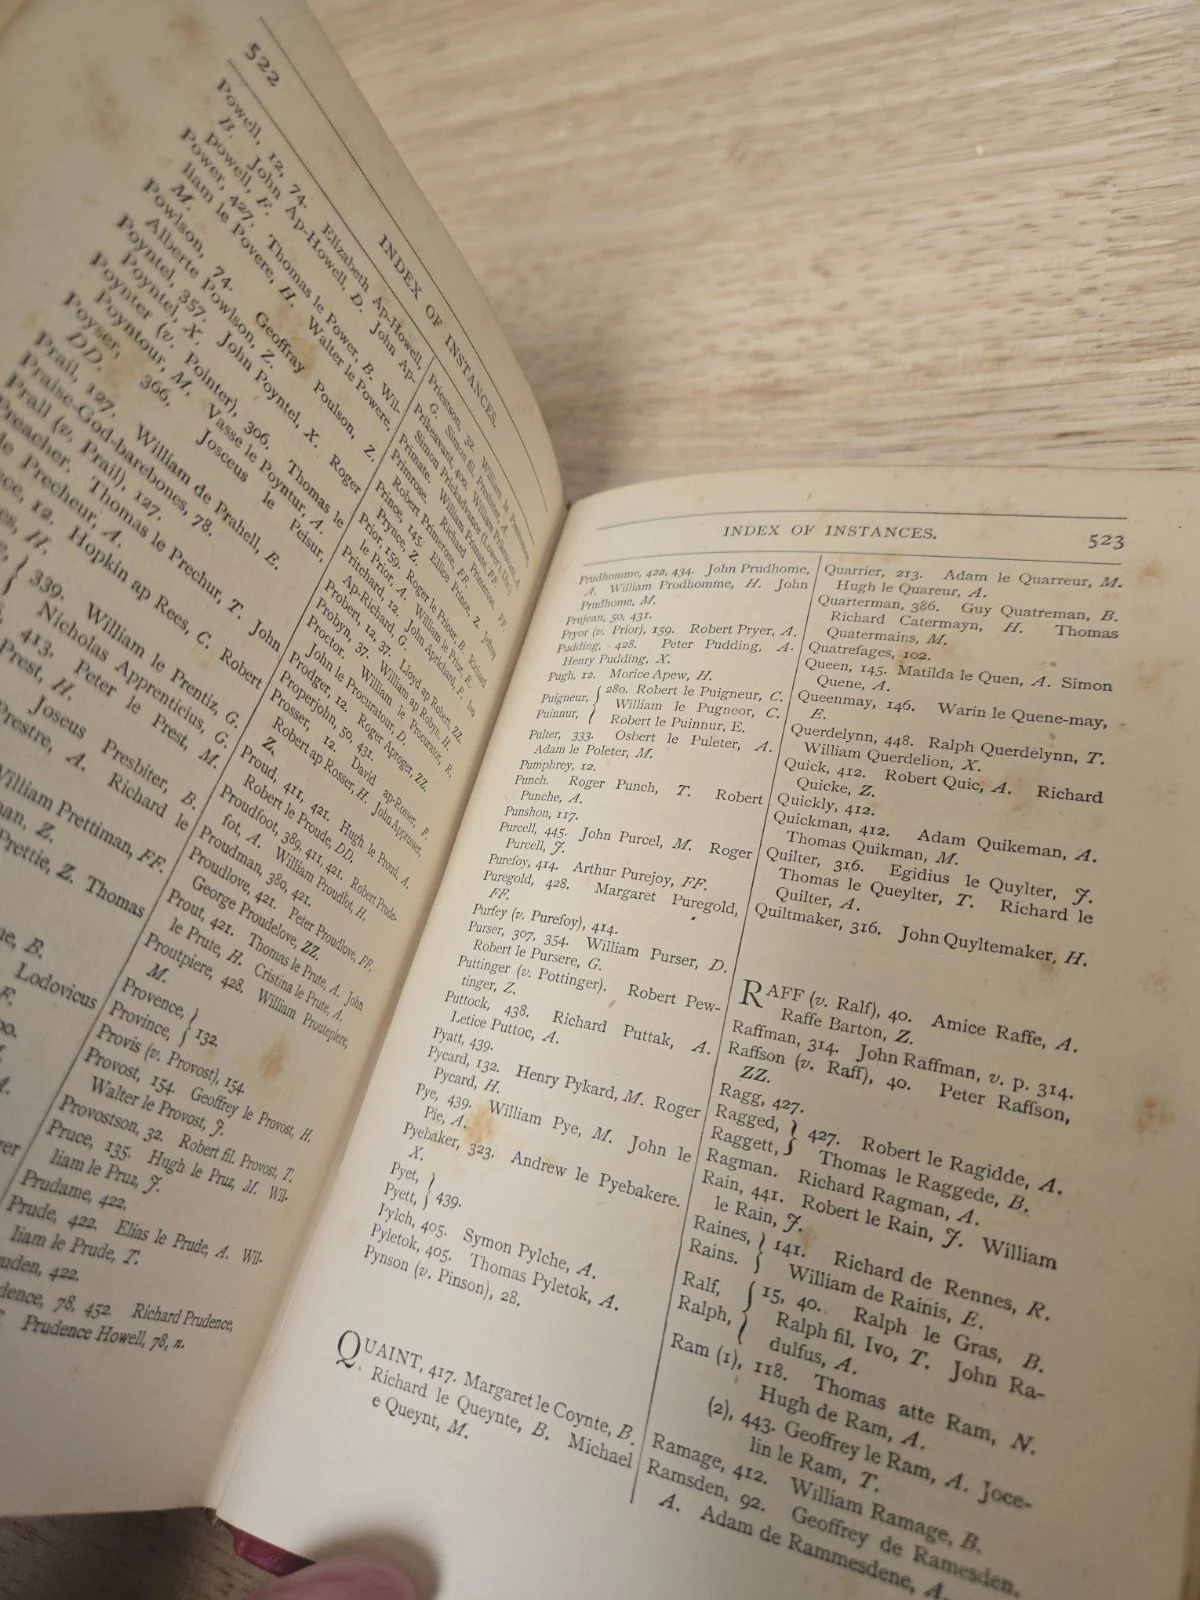 522
INDEX OF INSTANCES.
Powell, 12, 74. Elizabeth Ap-Howell,
B. John Ap-Howell, D. John Ap-
powell, F.
Power, 427. Thomas le Power, B. Wil-
liam le Povere, H. Walter le Powere,
M.
Powlson, 74. Geoffray Poulson, Z.
Alberte Powlson, Z.
Poyntel, 357. John Poyntel, X. Roger
Poyntel, X.
Poynter (v. Pointer), 306. Thomas le
Poyntour, M. Vasse le Poyntur, A.
Poyser, 366. Josceus le Peisur,
DD.
Prail, 127. William de Prahell, E.
Praise-God-barebones, 78.
Prall (v. Prail), 127.
Preacher. Thomas le Prechur, T. John
le Precheur, A.
12. Hopkin ap Rees, C. Robert
H.
339. William le Prentiz, G.
Nicholas Apprenticius, G.
413. Peter le Prest, M.
Prest, H.
Joseus Presbiter, B.
Prestre, A. Richard le
William Prettiman, FF.
Z.
Prettie, Z. Thomas
B.
Lodovicus
F.
Priestson, 32. William le
G. Simon fil. Presbiter, A.
Prikeavant, 400. William
Simon Prickadvance (Lower's Dict.)
Primate. William Primate, FF.
Primrose. Richard Primerose, FF.
Robert Primerose, FF.
Prince, 145. Elice Prince, Z.
Prynce, Z.
Prior, 159. Roger le Priour, B. Richard
le Prior, A. William le Prior, E.
Pritchard, 12. John Aprichard, F.
Ap-Richard, G.
Probert, 12, 37. Lloyd ap Robert, ZZ.
Probyn, 37. William ap Robyn, H.
Proctor. William le Procurator, R.
John le Procuratour, D.
Prodger, 12. Roger Aproger, ZZ.
Properjohn, 50, 431.
Prosser, 12. David ap-Rosser, F.
Robert ap Rosser, H. John Approsser,
Z.
Proud, 411, 421. Hugh le Proud, A.
Robert le Proude, DD.
Proudfoot, 389, 411, 421. Robert Prude-
fot, A. William Proudfot, H.
Proudman, 380, 421.
Proudlove, 421. Peter Proudlove, FF.
George Proudelove, ZZ.
Prout, 421. Thomas le Prute, A. John
le Prute, H. Cristina le Prute, A.
Proutpiere, 428. William Proutepiere,
M.
Provence, } 132.
Province,
Provis (v. Provost), 154
Provost, 154. Geoffrey le Provost, H.
Walter le Provost, J.
Provostson, 32. Robert fil. Provost, T.
Pruce, 135. Hugh le Pruz, M. Wil-
liam le Pruz, J.
Prudame, 422.
Prude, 422. Elias le Prude, A. Wil-
liam le Prude, T.
422.
78, 452. Richard Prudence,
Prudence Howell, 78, n.
INDEX OF INSTANCES.
523
Prudhomme, 422, 434. John Prudhome,
A. William Prodhomme, H. John
Prudhome, M.
Prujean, 50, 431.
Pryor (v. Prior), 159. Robert Pryer, A.
Pudding, 428. Peter Pudding, A.
Henry Pudding, X.
Pugh, 12. Morice Apew, H.
Puigneur, { 280. Robert le Puigneur, C.
Puinnur, William le Pugneor, C.
Robert le Puinnur, E.
Pulter, 333. Osbert le Puleter, A.
Adam le Poleter, M.
Pumphrey, 12.
Punch. Roger Punch, T. Robert
Punche, A.
Punshon, 117.
Purcell, 445. John Purcel, M. Roger
Purcell, J.
Purefoy, 414. Arthur Purejoy, FF.
Puregold, 428. Margaret Puregold,
FF.
Purfey (v. Purefoy), 414.
Purser, 307, 354. William Purser, D.
Robert le Pursere, G.
Puttinger (v. Pottinger). Robert Pew-
tinger, Z.
Puttock, 438. Richard Puttak, A.
Letice Puttoc, A.
Pyatt, 439.
Pycard, 132. Henry Pykard, M. Roger
Pycard, H.
Pye, 439. William Pye, M. John le
Pie, A.
Pyebaker, 323. Andrew le Pyebakere.
X.
Pyet, } 439.
Pyett,
Pylch, 405. Symon Pylche, A.
Pyletok, 405. Thomas Pyletok, A.
Pynson (v. Pinson), 28.
QUAINT, 417. Margaret le Coynte, B.
Richard le Queynte, B. Michael
e Queynt, M.
Quarrier, 213. Adam le Quarreur, M.
Hugh le Quareur, A.
Quarterman, 386. Guy Quatreman, B.
Richard Catermayn, H. Thomas
Quatermains, M.
Quatrefages, 102.
Queen, 145. Matilda le Quen, A. Simon
Quene, A.
Queenmay, 146. Warin le Quene-may,
E.
Querdelynn, 448. Ralph Querdelynn, T.
William Querdelion, X.
Quick, 412. Robert Quic, A. Richard
Quicke, Z.
Quickly, 412.
Quickman, 412. Adam Quikeman, A.
Thomas Quikman, M.
Quilter, 316. Egidius le Quylter, J.
Thomas le Queylter, T. Richard le
Quilter, A.
Quiltmaker, 316. John Quyltemaker, H.
RAFF (v. Ralf), 40. Amice Raffe, A.
Raffe Barton, Z.
Raffman, 314. John Raffman, v. p. 314.
Raffson (v. Raff), 40. Peter Raffson,
ZZ.
Ragg, 427.
Ragged, } 427. Robert le Ragidde, A.
Raggett, Thomas le Raggede, B.
Ragman. Richard Ragman, A.
Rain, 441. Robert le Rain, J. William
le Rain, J.
Raines, } 141. Richard de Rennes, R.
Rains. William de Rainis, E.
Ralf, { 15, 40. Ralph le Gras, B.
Ralph, Ralph fil. Ivo, T. John Ra-
dulfus, A.
Ram (1), 118. Thomas atte Ram, N.
Hugh de Ram, A.
(2), 443. Geoffrey le Ram, A. Joce-
lin le Ram, T.
Ramage, 412. William Ramage, B.
Ramsden, 92. Geoffrey de Ramesden.
A. Adam de Rammesdene, A.